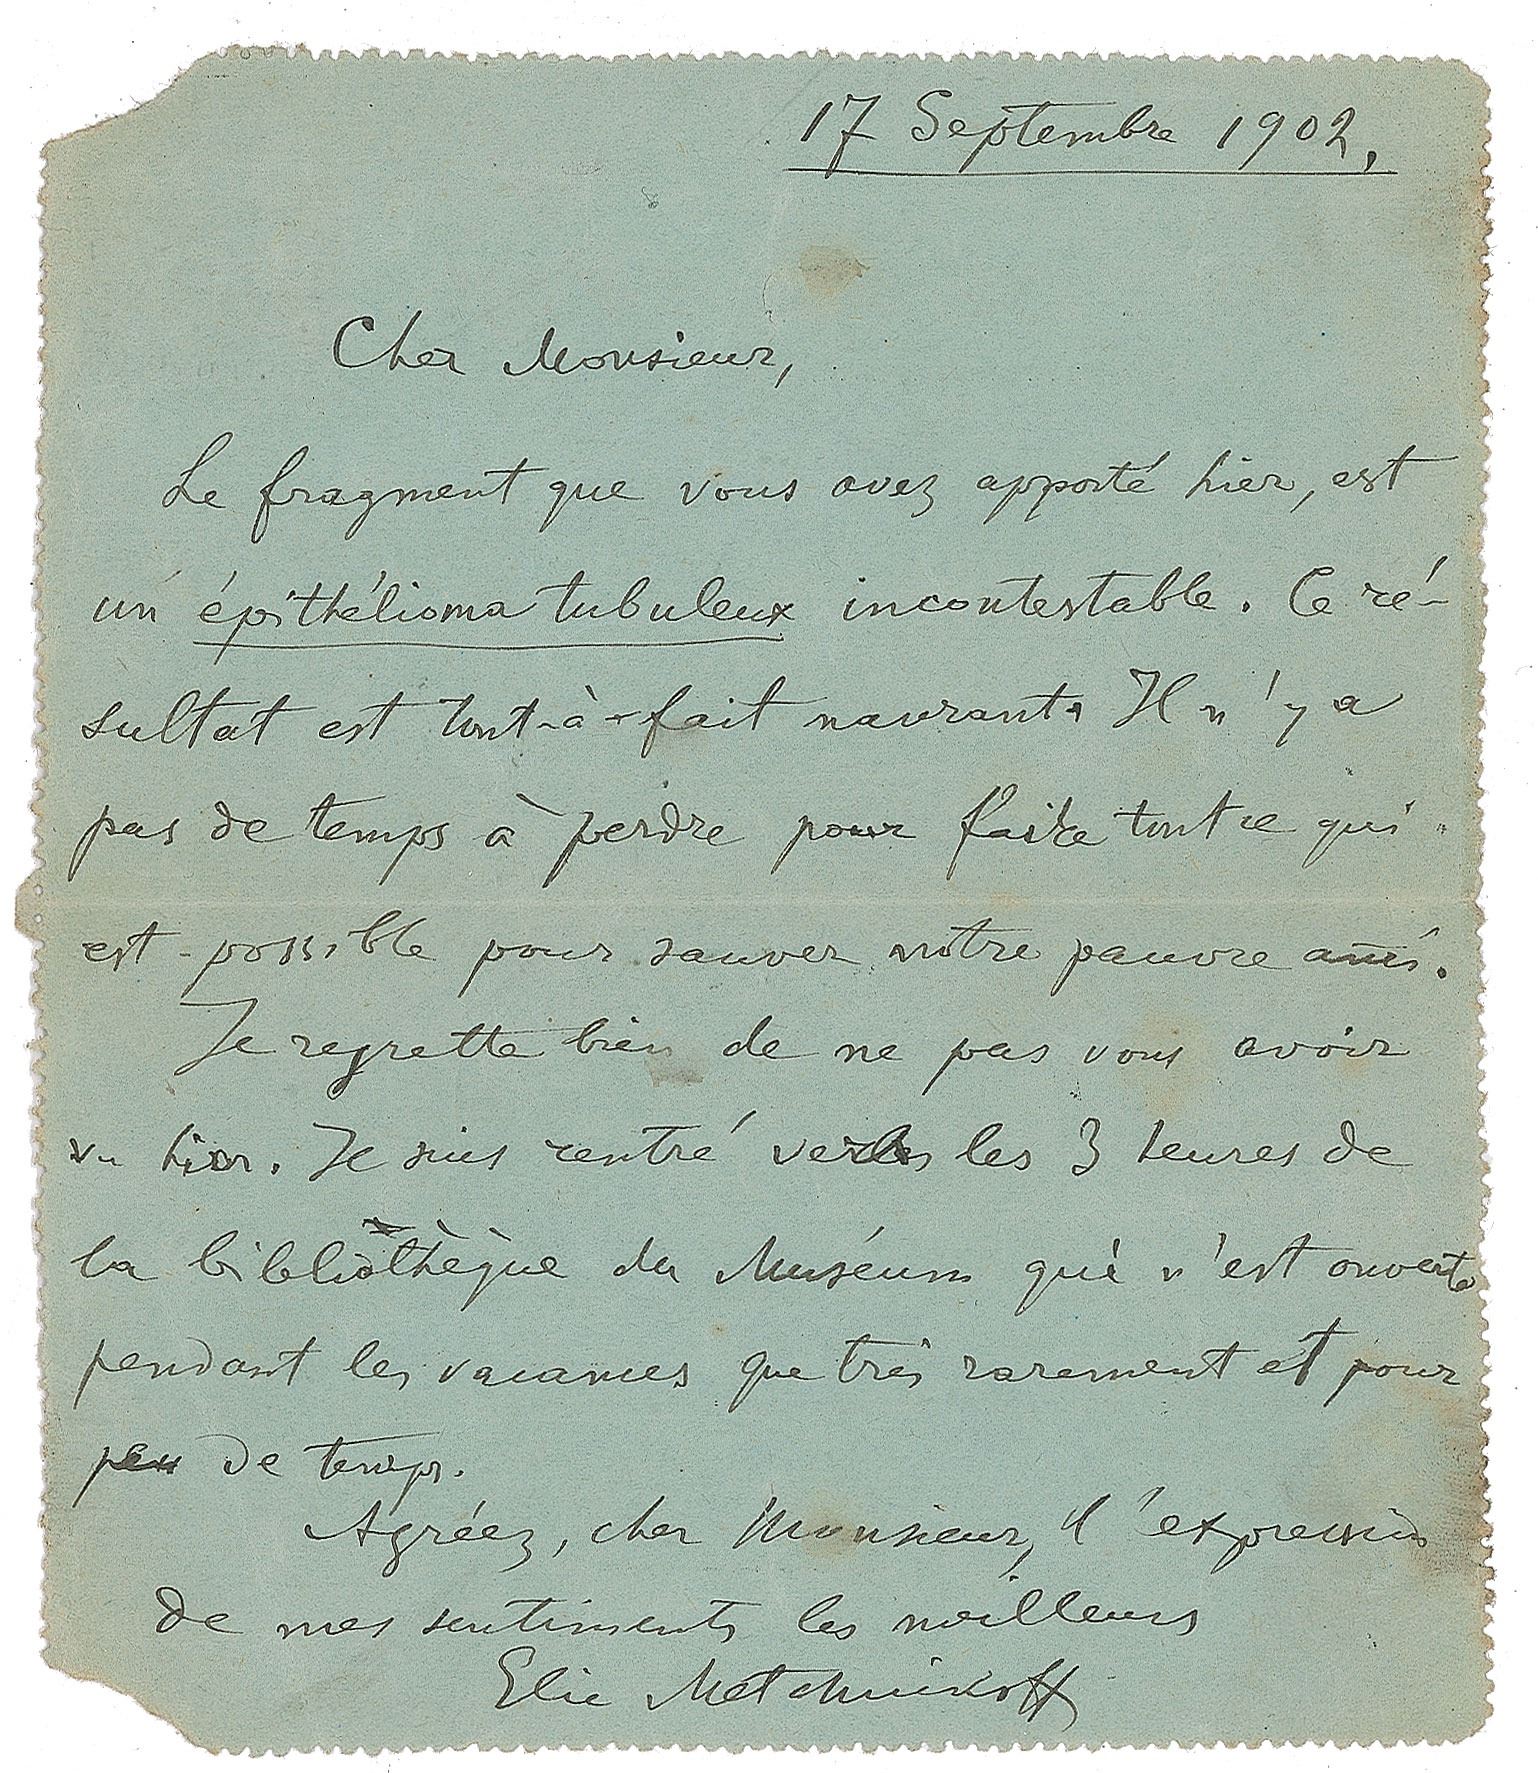 17 Septembre 1902,
Cher Monsieur,
Le fragment que vous avez apporté hier, est
un épithélioma tubuleux incontestable. Ce ré-
sultat est tout-à-fait navrant. Il n'y a
pas de temps à perdre pour faire tout ce qui
est possible pour sauver notre pauvre ami.
Je regrette bien de ne pas vous avoir
vu hier. Je suis rentré vers les 3 heures de
la bibliothèque du Muséum qui n'est ouverte
pendant les vacances que très rarement et pour
peu de temps.
Agréez, cher Monsieur, l'expression
de mes sentiments les meilleurs
Elie Metchnikoff